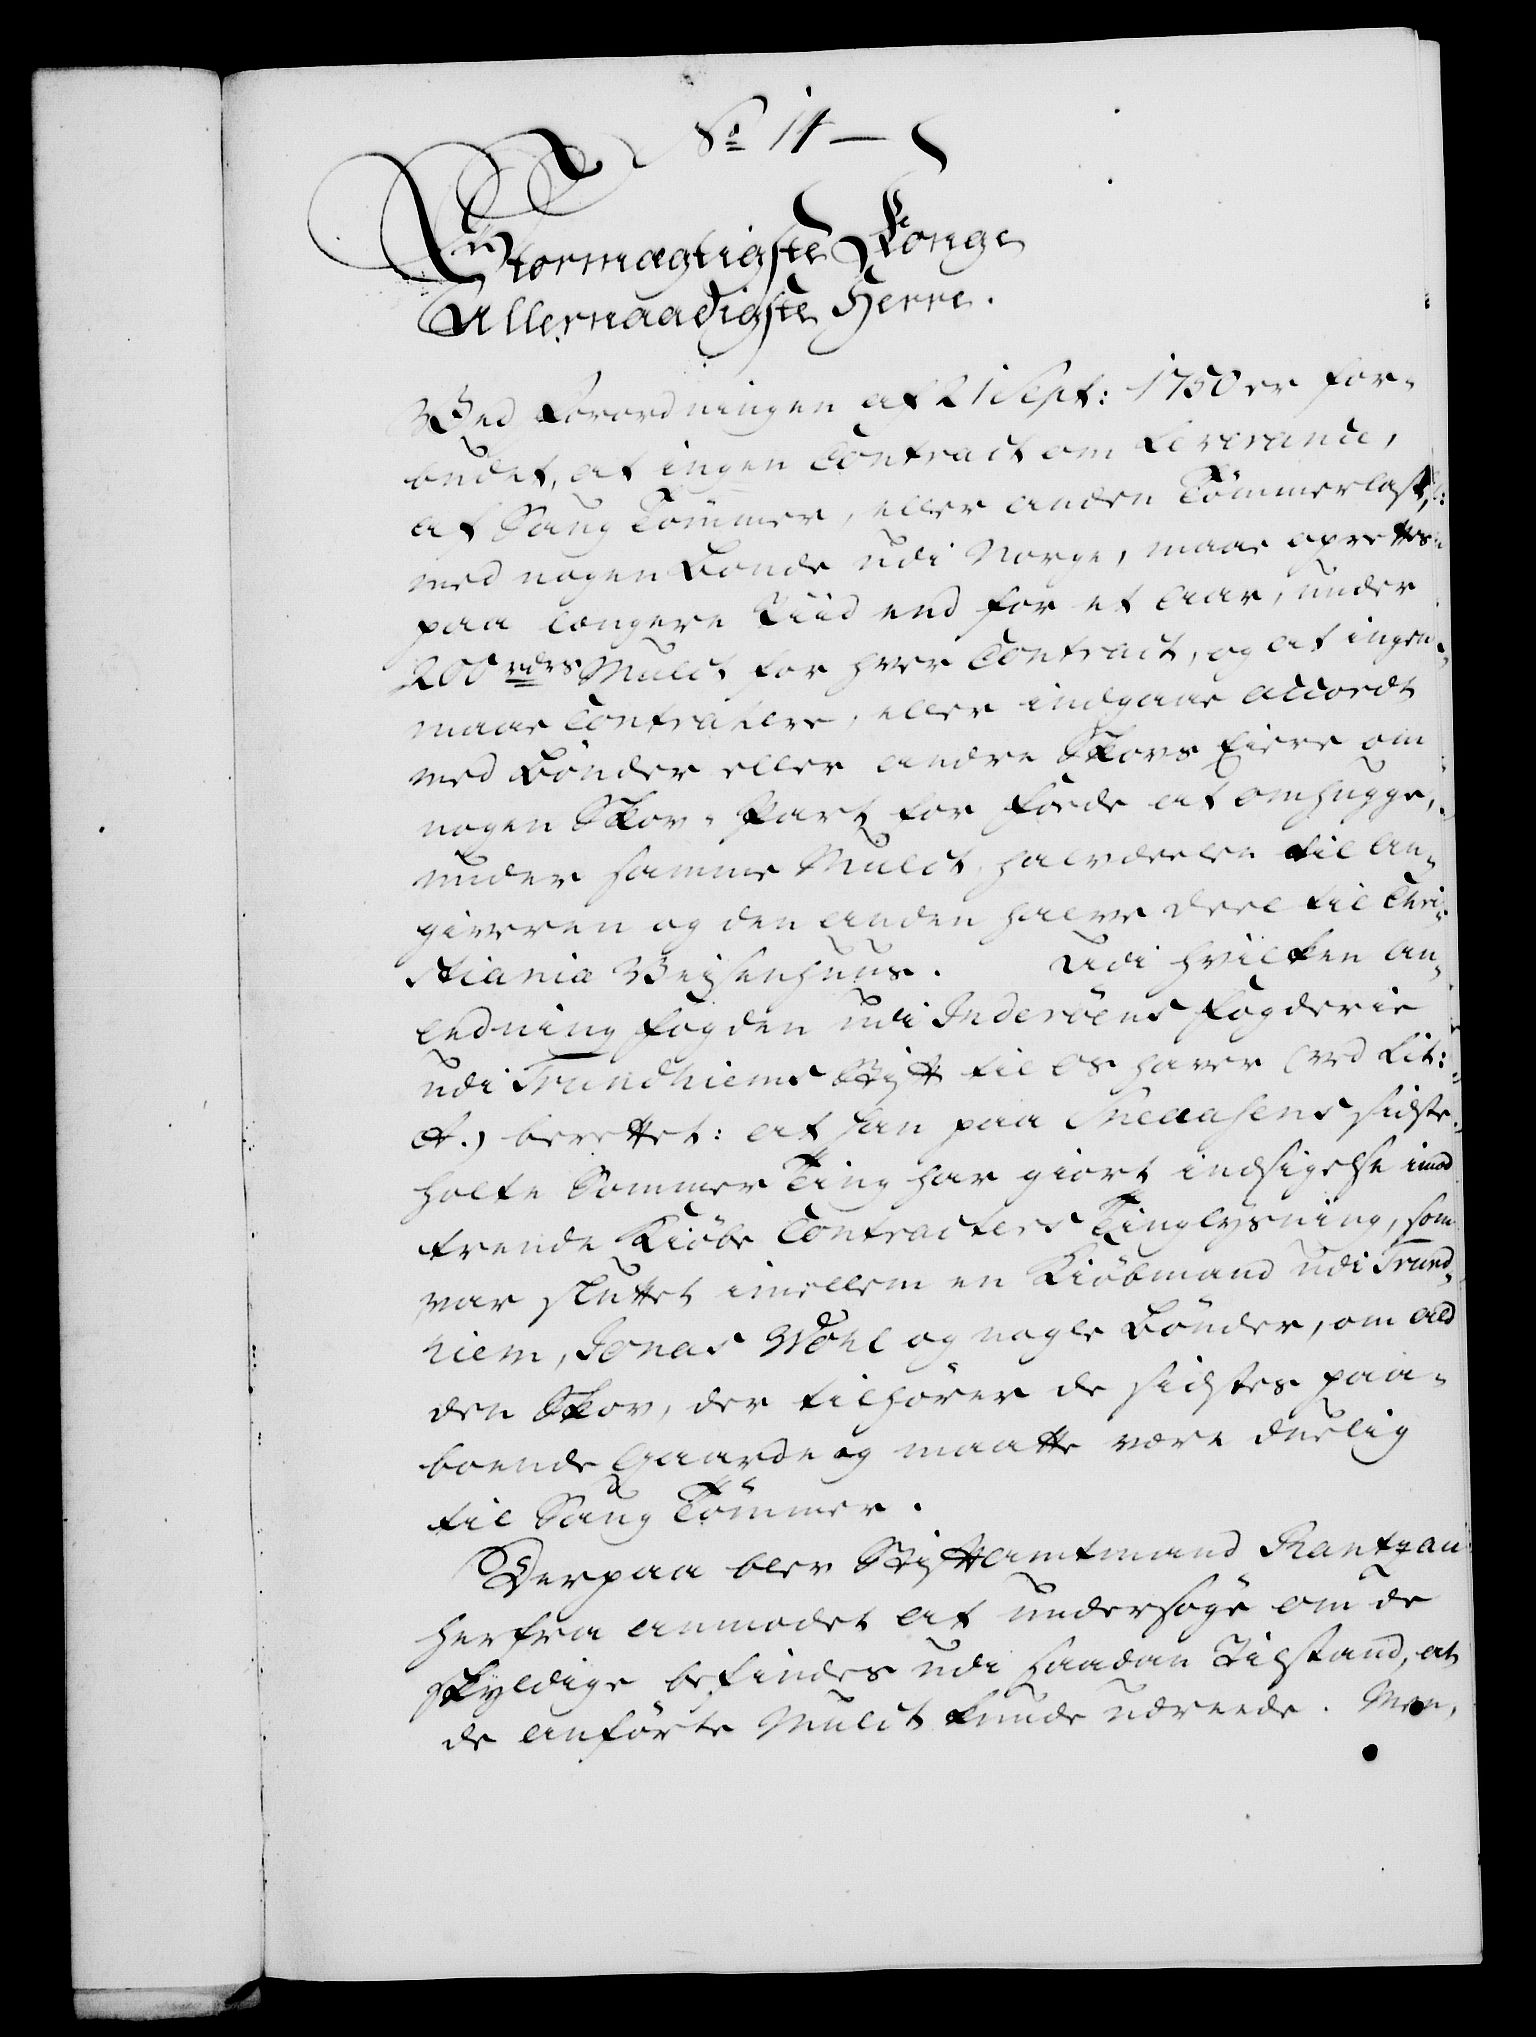 No 14 —
Stormægtigste Konge
Allernaadigste Herre.
Ved Forordningen af 21 Sept: 1750 er for-
budet, at ingen Contract om Leverance,
af Saug Tömmer, eller anden Tömmerlast,
med nogen Bonde udi Norge, maae oprettes
paa længere Tiid end for et Aar, under
200 rdrs Mulct for hver Contract, og at ingen
maae Contrahere, eller indgaae Accordt
med Bönder eller andre Skovs Eiere om
nogen Skov-Part for Fode at omhugge,
under samme Mulct, halvdeelen til An-
giveren og den anden halve Deel til Chri-
stiania Veisenhuus. Udi hvilken An-
ledning Fogden udi Inderöens Fogderie
udi Trundhiems Stift til os haver (ved Lit:
A.) berettet: at han paa Sneaasens sidste
holte Sommer Ting har giort indsigelse imod
trende Kiöbe Contracters Tinglysning, som
var sluttet imellem en Kiöbmand udi Trund-
hiem, Jonas Wohl og nogle Bönder, om ald
den Skov, der tilhörer de sidstes paa-
boende Gaarde og maatte være duelig
til Saug Tömmer.
Derpaa blev Stiftamtmand Rantzau
herfra anmodet at undersöge om de
skyldige befindes udi saadan Tilstand, at
de anförte Mulct kunde udreede. Men,